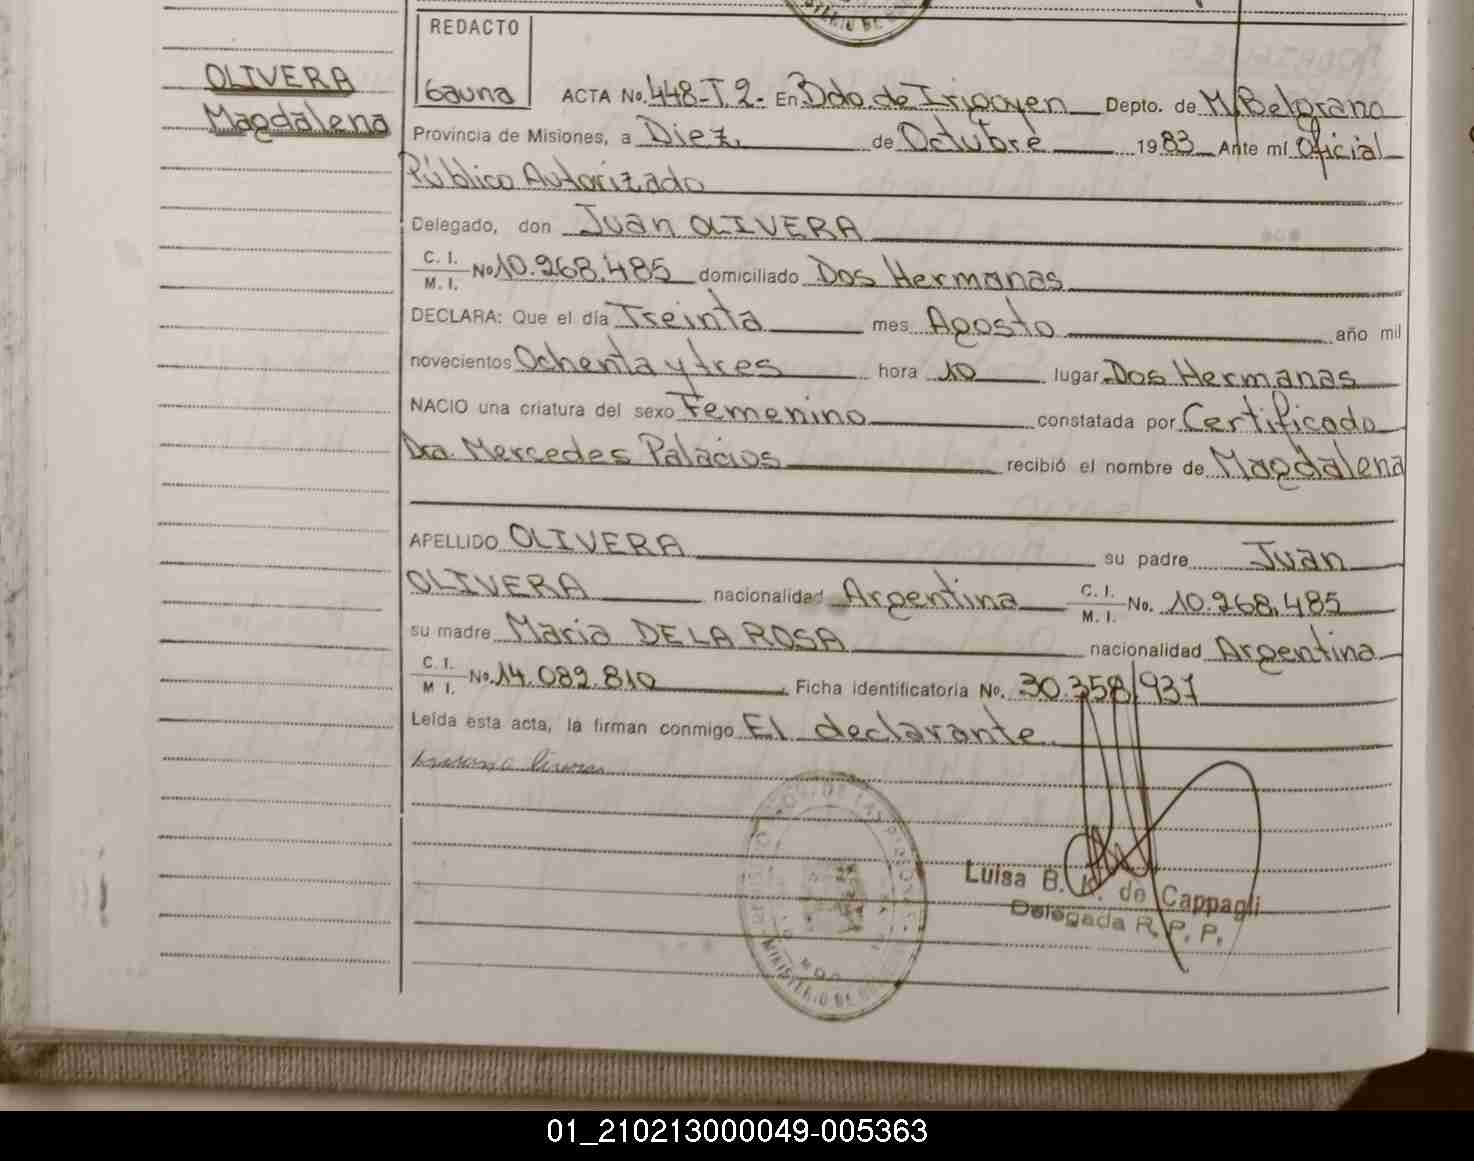 REDACTO
Gauna
OLIVERA
Magdalena
ACTA No. 448-T 2- En Bdo de Irigoyen Depto. de M. Belgrano
Provincia de Misiones, a Diez de Octubre 1983 Ante mí Oficial
Público Autorizado
Delegado, don Juan OLIVERA
C. I. / M. I. No 10.268.485 domiciliado Dos Hermanas
DECLARA: Que el día Treinta mes Agosto año mil
novecientos Ochenta y tres hora 10 lugar Dos Hermanas
NACIO una criatura del sexo Femenino constatada por Certificado
Dra. Mercedes Palacios recibió el nombre de Magdalena
APELLIDO OLIVERA su padre Juan
OLIVERA nacionalidad Argentina C. I. / M. I. No. 10.268.485
su madre Maria DE LA ROSA nacionalidad Argentina
C. I. / M I. No. 14.089.810 Ficha identificatoria No. 30.358.937
Leída esta acta, la firman conmigo El declarante
Luisa B. K. de Cappagli
Delegada R. P. P.
MINISTERIO DE
01_210213000049-005363